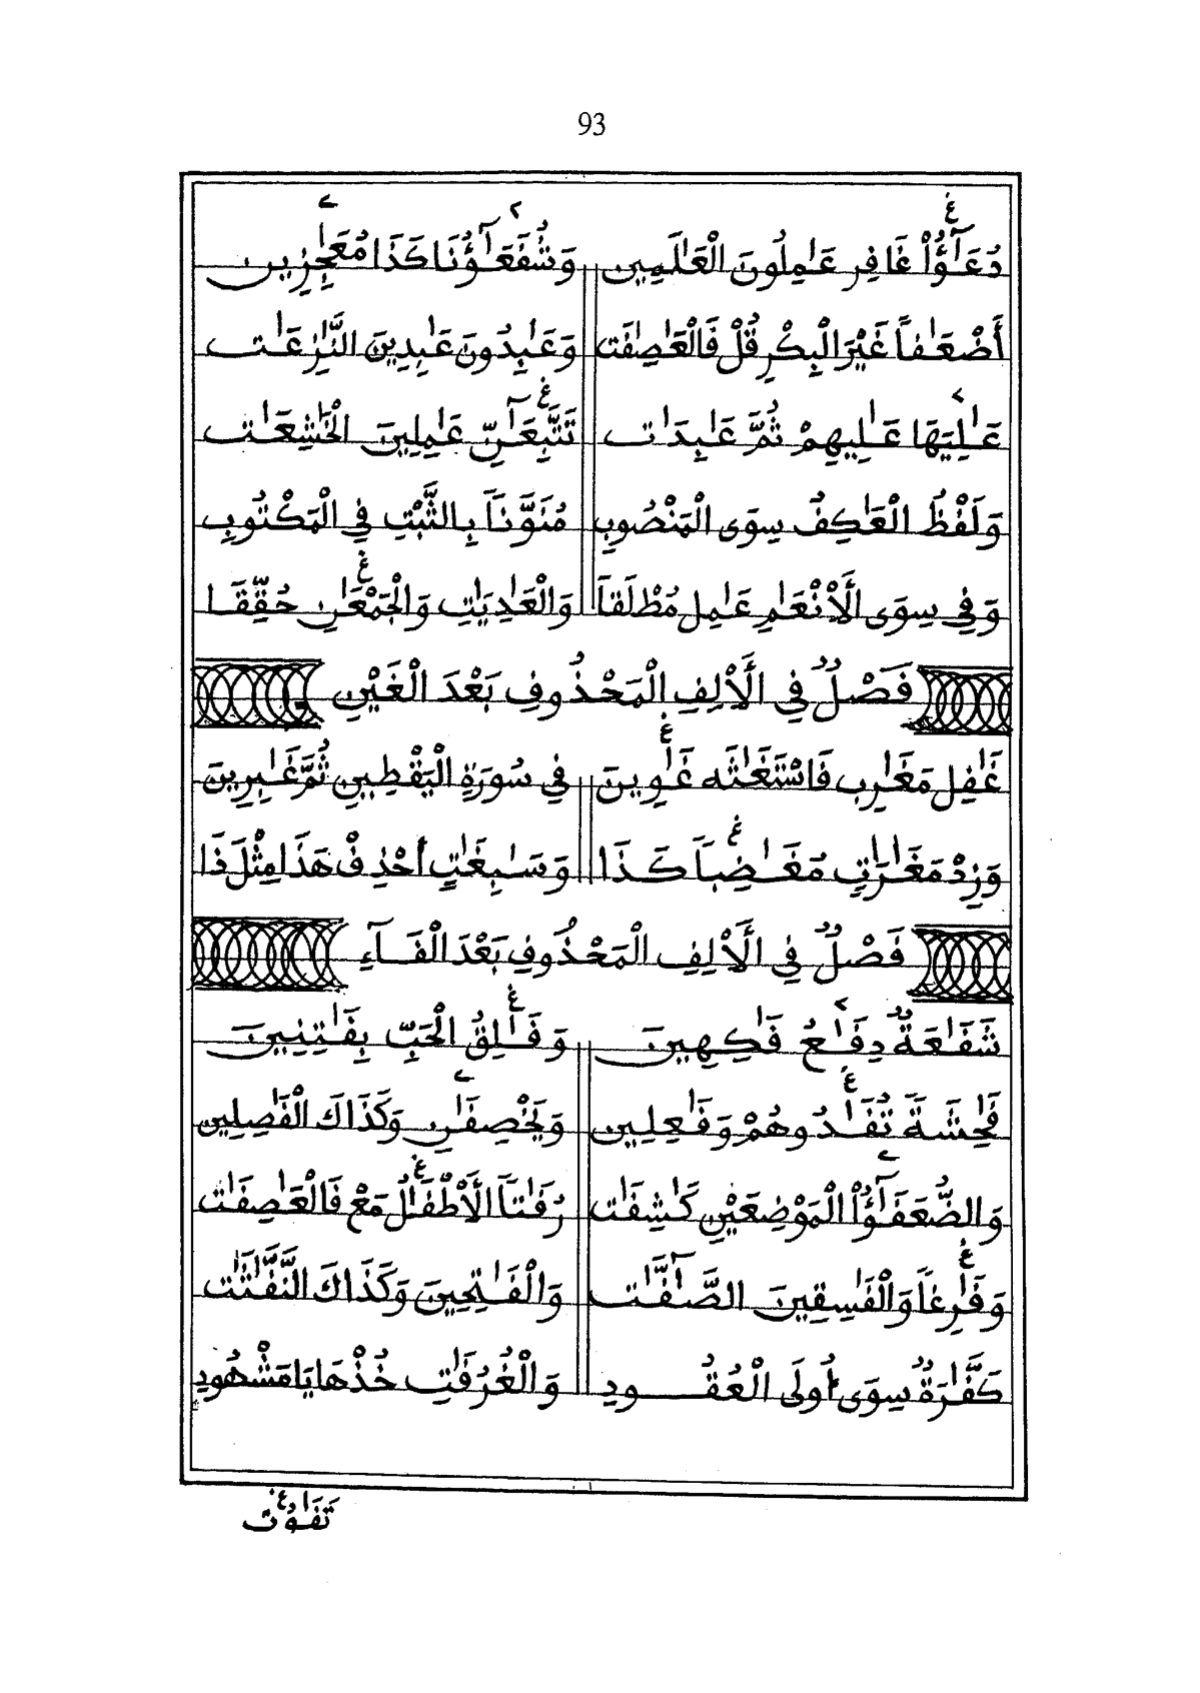 93
دُعَـٰٓؤُاْ غَافِرِ عَـٰمِلُونَ الْعَـٰلَمِين وَشُفَعَـٰٓؤُنَا كَذَا مُعَـٰجِزِين
أَضْعَـٰفاً غَيْرَ الْبِكْرِ قُلْ فَالْعَـٰصِفَـٰت وَعَـٰبِدُونَ عَـٰبِدِينَ النَّـٰزِعَـٰت
عَـٰلِيَهَا عَـٰلِيهِمْ ثُمَّ عَـٰبِدَات تَتَّبِعَـٰٓنِّ عَـٰمِلِينَ الْخَـٰشِعَـٰت
وَلَفْظُ الْعَـٰكِفُ سِوَى الْمَنْصُوبِ مُنَوَّناَ بِالثَّبْتِ فِي الْمَكْتُوبِ
وَفِي سِوَى الْأَنْعَـٰمِ عَـٰمِل مُطْلَقاَ وَالْعَـٰدِيَـٰتِ وَالْجَمْعَـٰنِ حُقِّقَـا
فَصْلٌ فِي الْأَلِفِ الْمَحْذُوفِ بَعْدَ الْغَيْنِ
غَـٰفِل مَغَـٰرِب فَاسْتَغَـٰثَه غَـٰوِينَ فِي سُورَةِ الْيَقْطِينِ ثُمَّ غَـٰبِرِينَ
وَزِدْ مَغَـٰرَاتٍ مُغَـٰضِباَ كَذَا وَسَـٰبِغَـٰتٍ احْذِفْ هَذَا مِثْلَ ذَا
فَصْلٌ فِي الْأَلِفِ الْمَحْذُوفِ بَعْدَ الْفَـآءِ
شَفَـٰعَةٌ دِفَـٰعُ فَـٰكِهِينَ وَفَـٰلِقُ الْحَبِّ بِفَـٰتِنِينَ
فَـٰحِشَةَ تُفَـٰدُوهُمْ وَفَـٰعِلِين وَيَخْصِفَـٰنِ وَكَذَاكَ الْفَـٰصِلِين
وَالضُّعَفَـٰٓؤُاْ الْمَوْضِعَيْنِ كَـٰشِفَـٰت رُفَـٰتاَ الْأَطْفَـٰلُ مَعْ فَالْعَـٰصِفَـٰت
وَفَـٰرِغاً وَالْفَـٰسِقِينَ الصَّـٰٓفَّـٰت وَالْفَـٰتِحِينَ وَكَذَاكَ النَّفَّـٰثَـٰت
كَفَّـٰرَةٌ سِوَى أُولَى الْعُقُودِ وَالْغُرُفَـٰتِ خُذْهَا يَا مَشْهُودِ
تَفَـٰوُت